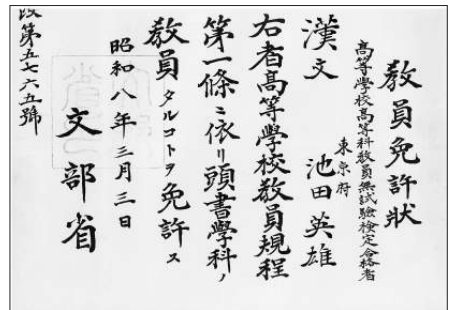 教員免許狀
高等學校高等科教員無試驗檢定合格者
東京府
漢文　池田英雄
右者高等學校教員規程
第一條ニ依リ頭書學科ノ
教員タルコトヲ免許ス
昭和八年三月三日
文部省
第五七六五號